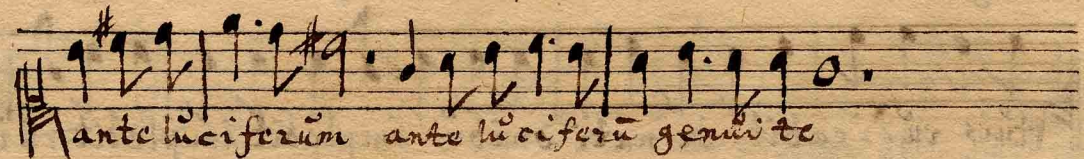 ante luciferum ante luciferū genuite